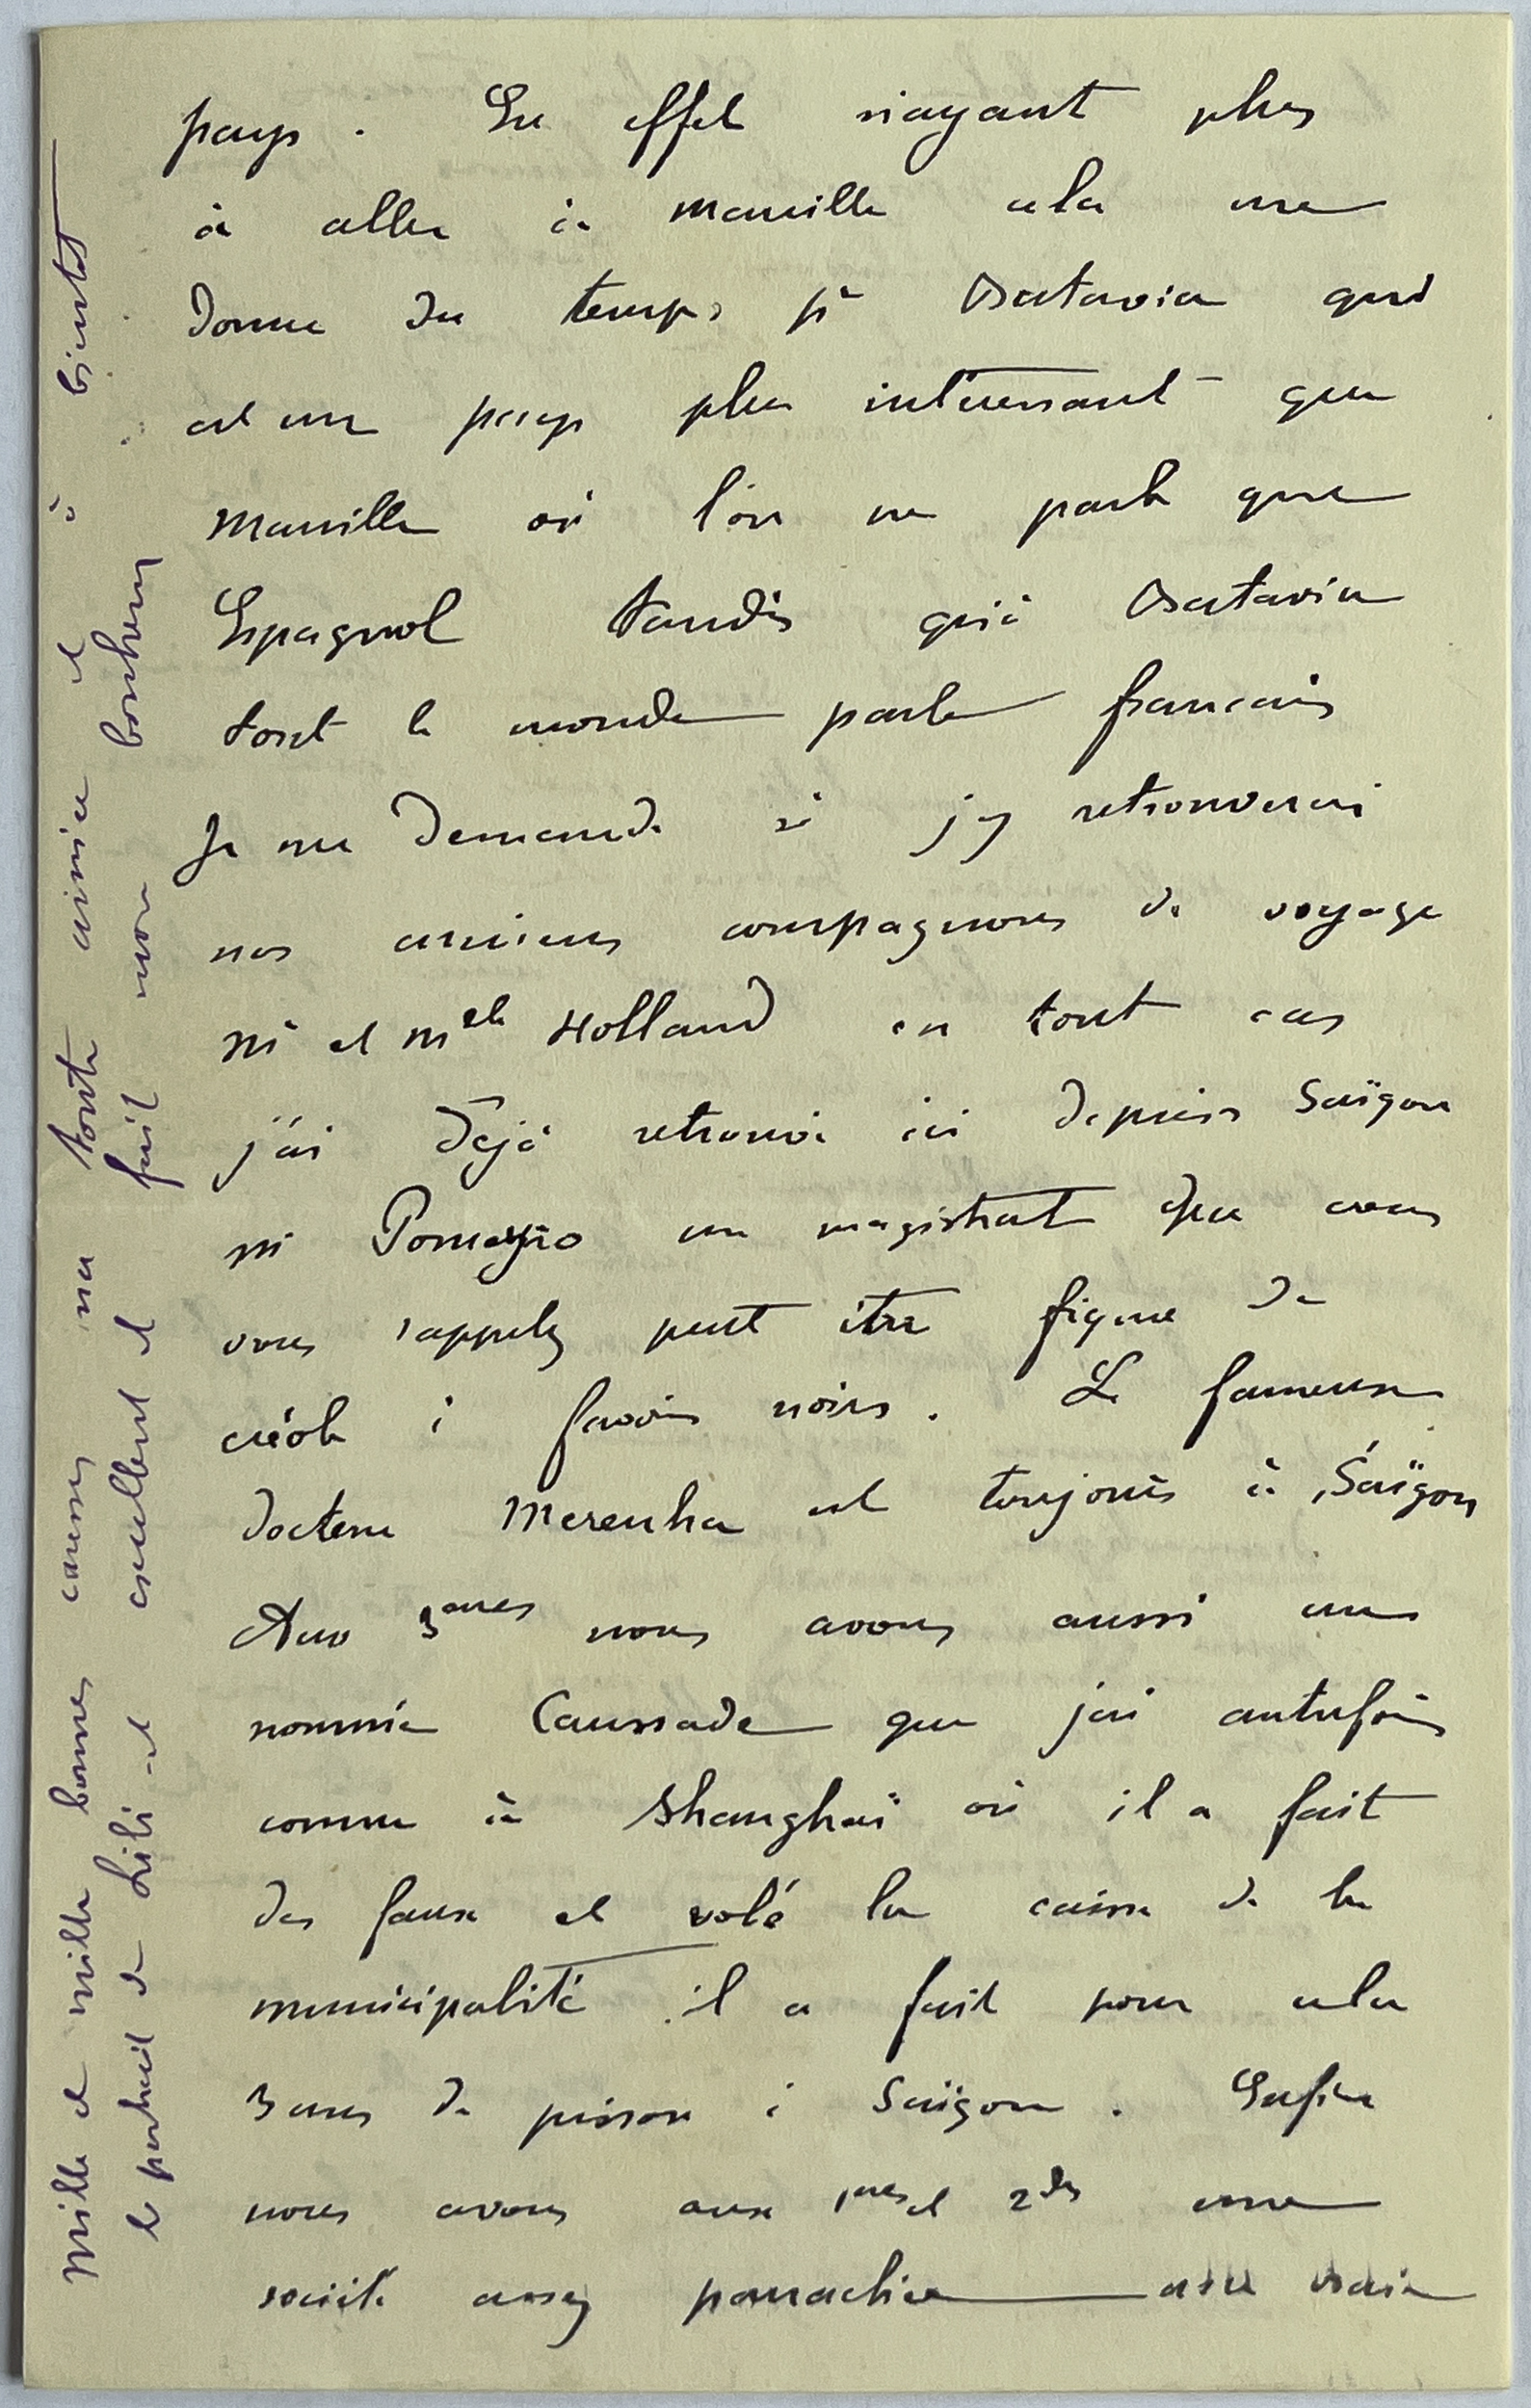 pays. En effet n'ayant plus
à aller à Manille cela me
donne du temps pr Batavia qui
est un pays plus intéressant que
Manille où l'on ne parle que
Espagnol tandis qu'à Batavia
tout le monde parle français
Je me demande si j'y retrouverai
nos anciens compagnons de voyage
Mr et Melle Holland en tout cas
j'ai déjà retrouvé ici depuis Saïgon
Mr un magistrat que vous
vous rappelez peut être figure de
créole à favoris noirs. Le fameux
docteur est toujours à Saïgon
Aux 3emes nous avons aussi un
nommé Caussade que j'ai autrefois
connu à Shanghaï où il a fait
des faux et volé la caisse de la
municipalité il a fait pour cela
3 ans de prison à Saïgon. Enfin
nous avons aux 1eres et 2des une
société assez panachée
Mille et mille bonnes causes ma toute aimée et à bientôt
le portrait de Lili est excellent et fait mon bonheur